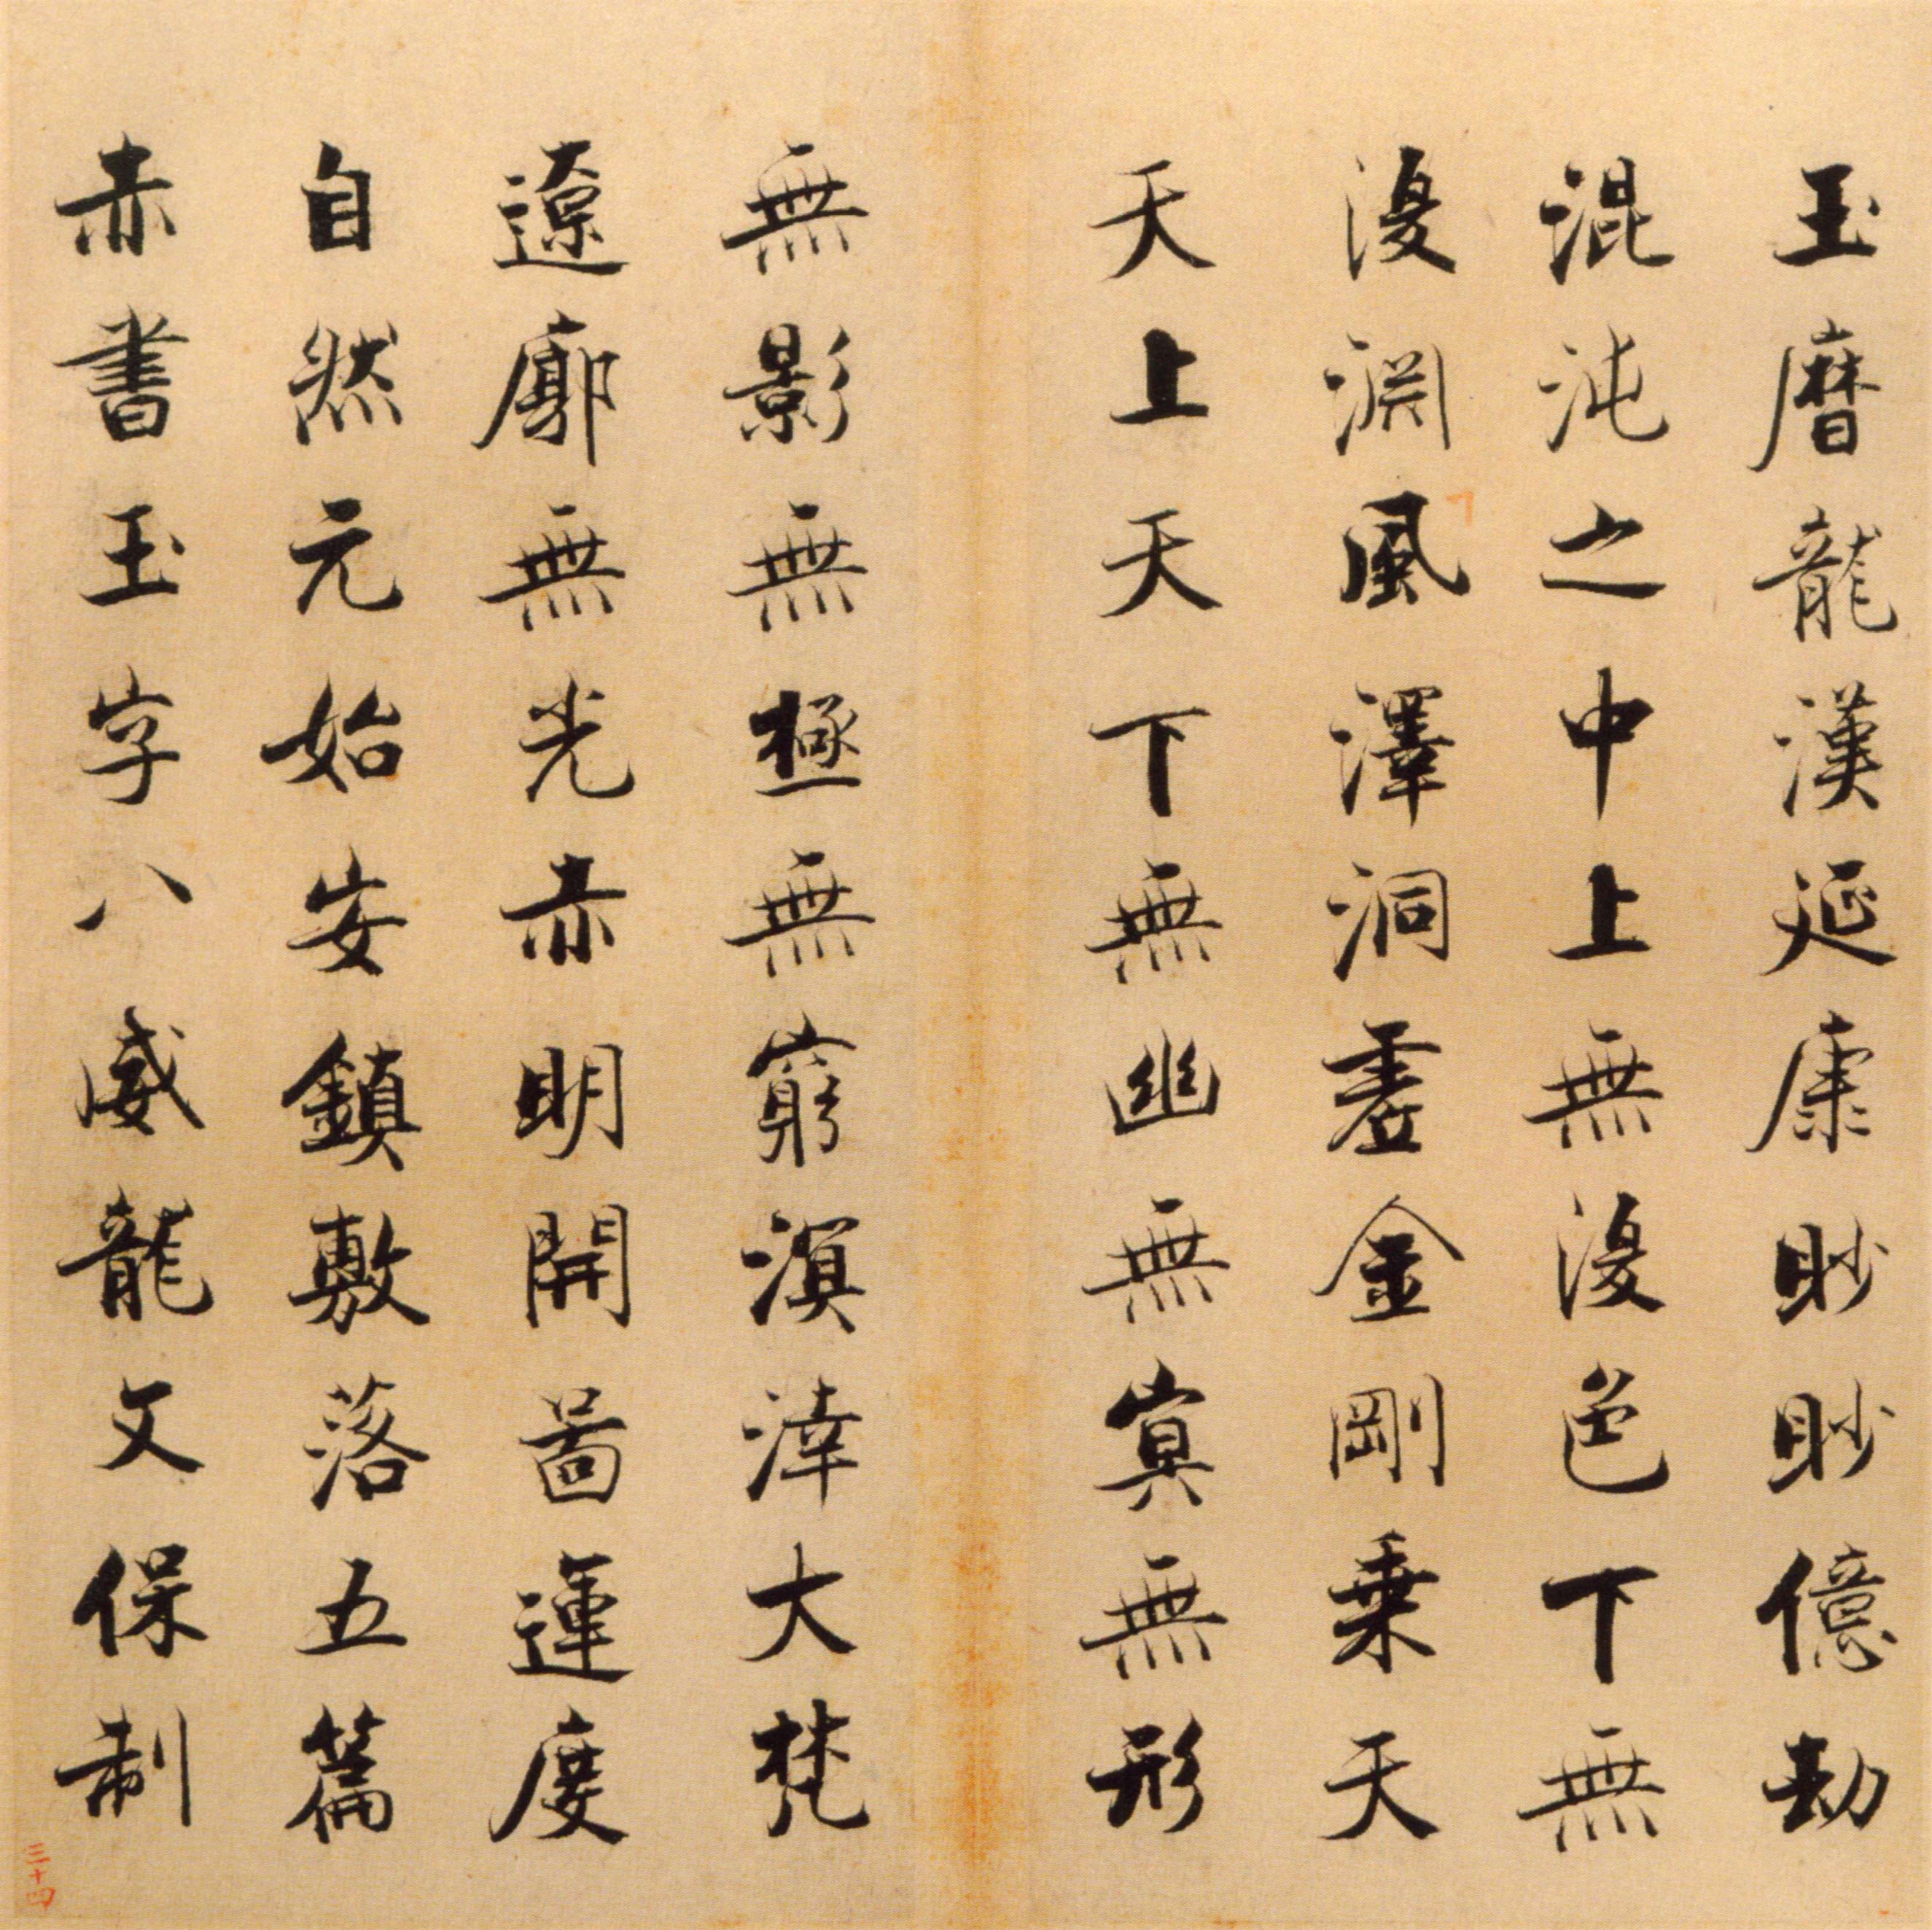 玉曆龍漢延康眇眇億劫
混沌之中上無復色下無
復淵風澤洞虛金剛乘天
天上天下無幽無冥無形
無影無極無窮溟涬大梵
遼廓無光赤明開啚運度
自然元始安鎮敷落五篇
赤書玉字八威龍文保制
三十四